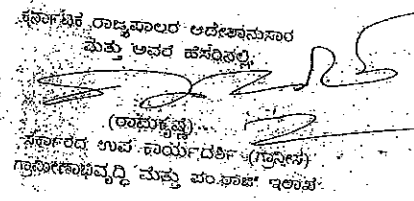 ಕರ್ನಾಟಕ ರಾಜ್ಯಪಾಲರ ಆದೇಶಾನುಸಾರ
ಮತ್ತು ಅವರ ಹೆಸರಿನಲ್ಲಿ,
(ರಾಮಕೃಷ್ಣ)
ಸರ್ಕಾರದ ಉಪ ಕಾರ್ಯದರ್ಶಿ (ಗ್ರಾನೀಸ)
ಗ್ರಾಮೀಣಾಭಿವೃದ್ಧಿ ಮತ್ತು ಪಂ.ರಾಜ್ ಇಲಾಖೆ